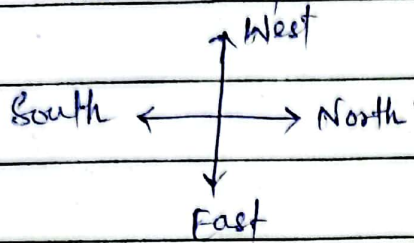 West
South North
East